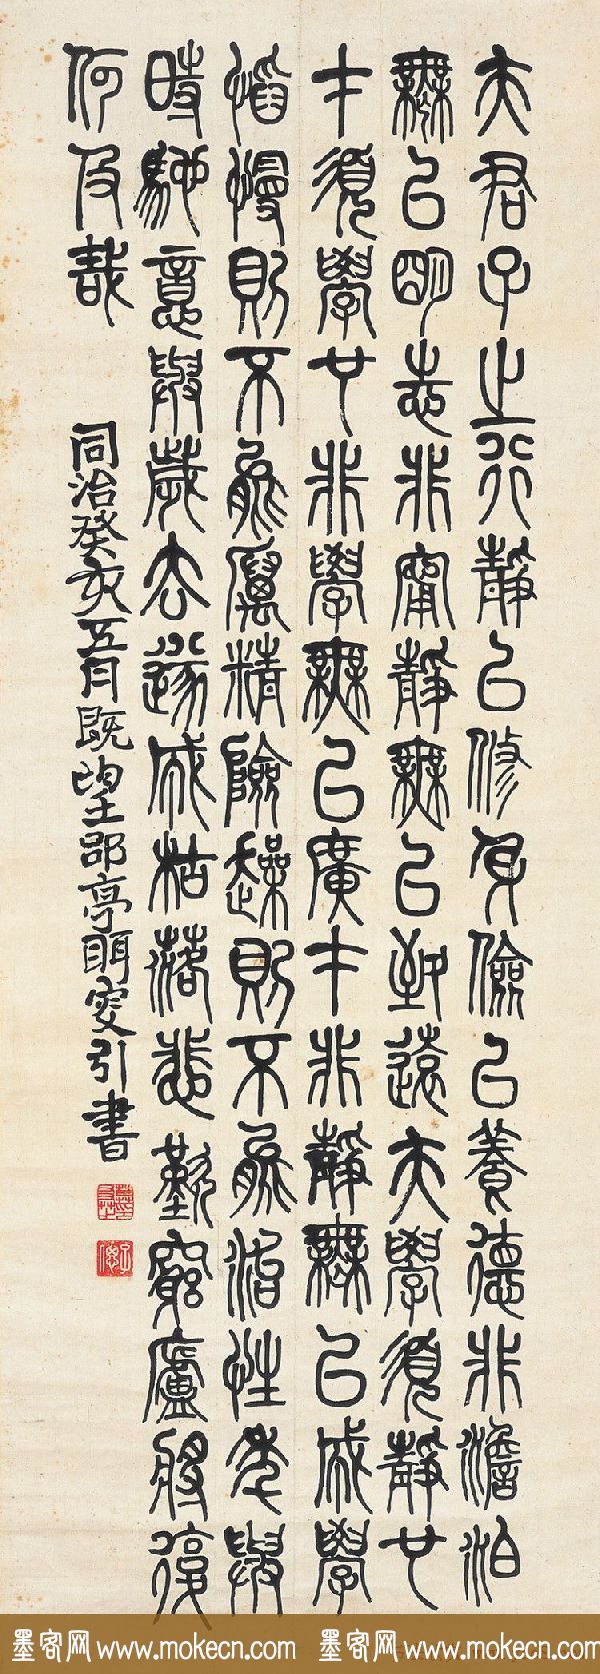 夫君子之行靜以修身儉以養德非澹泊
無以明志非甯靜無以致遠夫學須靜也
才須學也非學無以廣才非靜無以成學
慆慢則不能厲精險躁則不能治性年與
時馳意與歲去遂成枯落悲歎窮廬將復
何及哉
同治癸亥五月既望郘亭眲叟引書
墨客网www.mokecn.com 墨客网www.mokecn.com